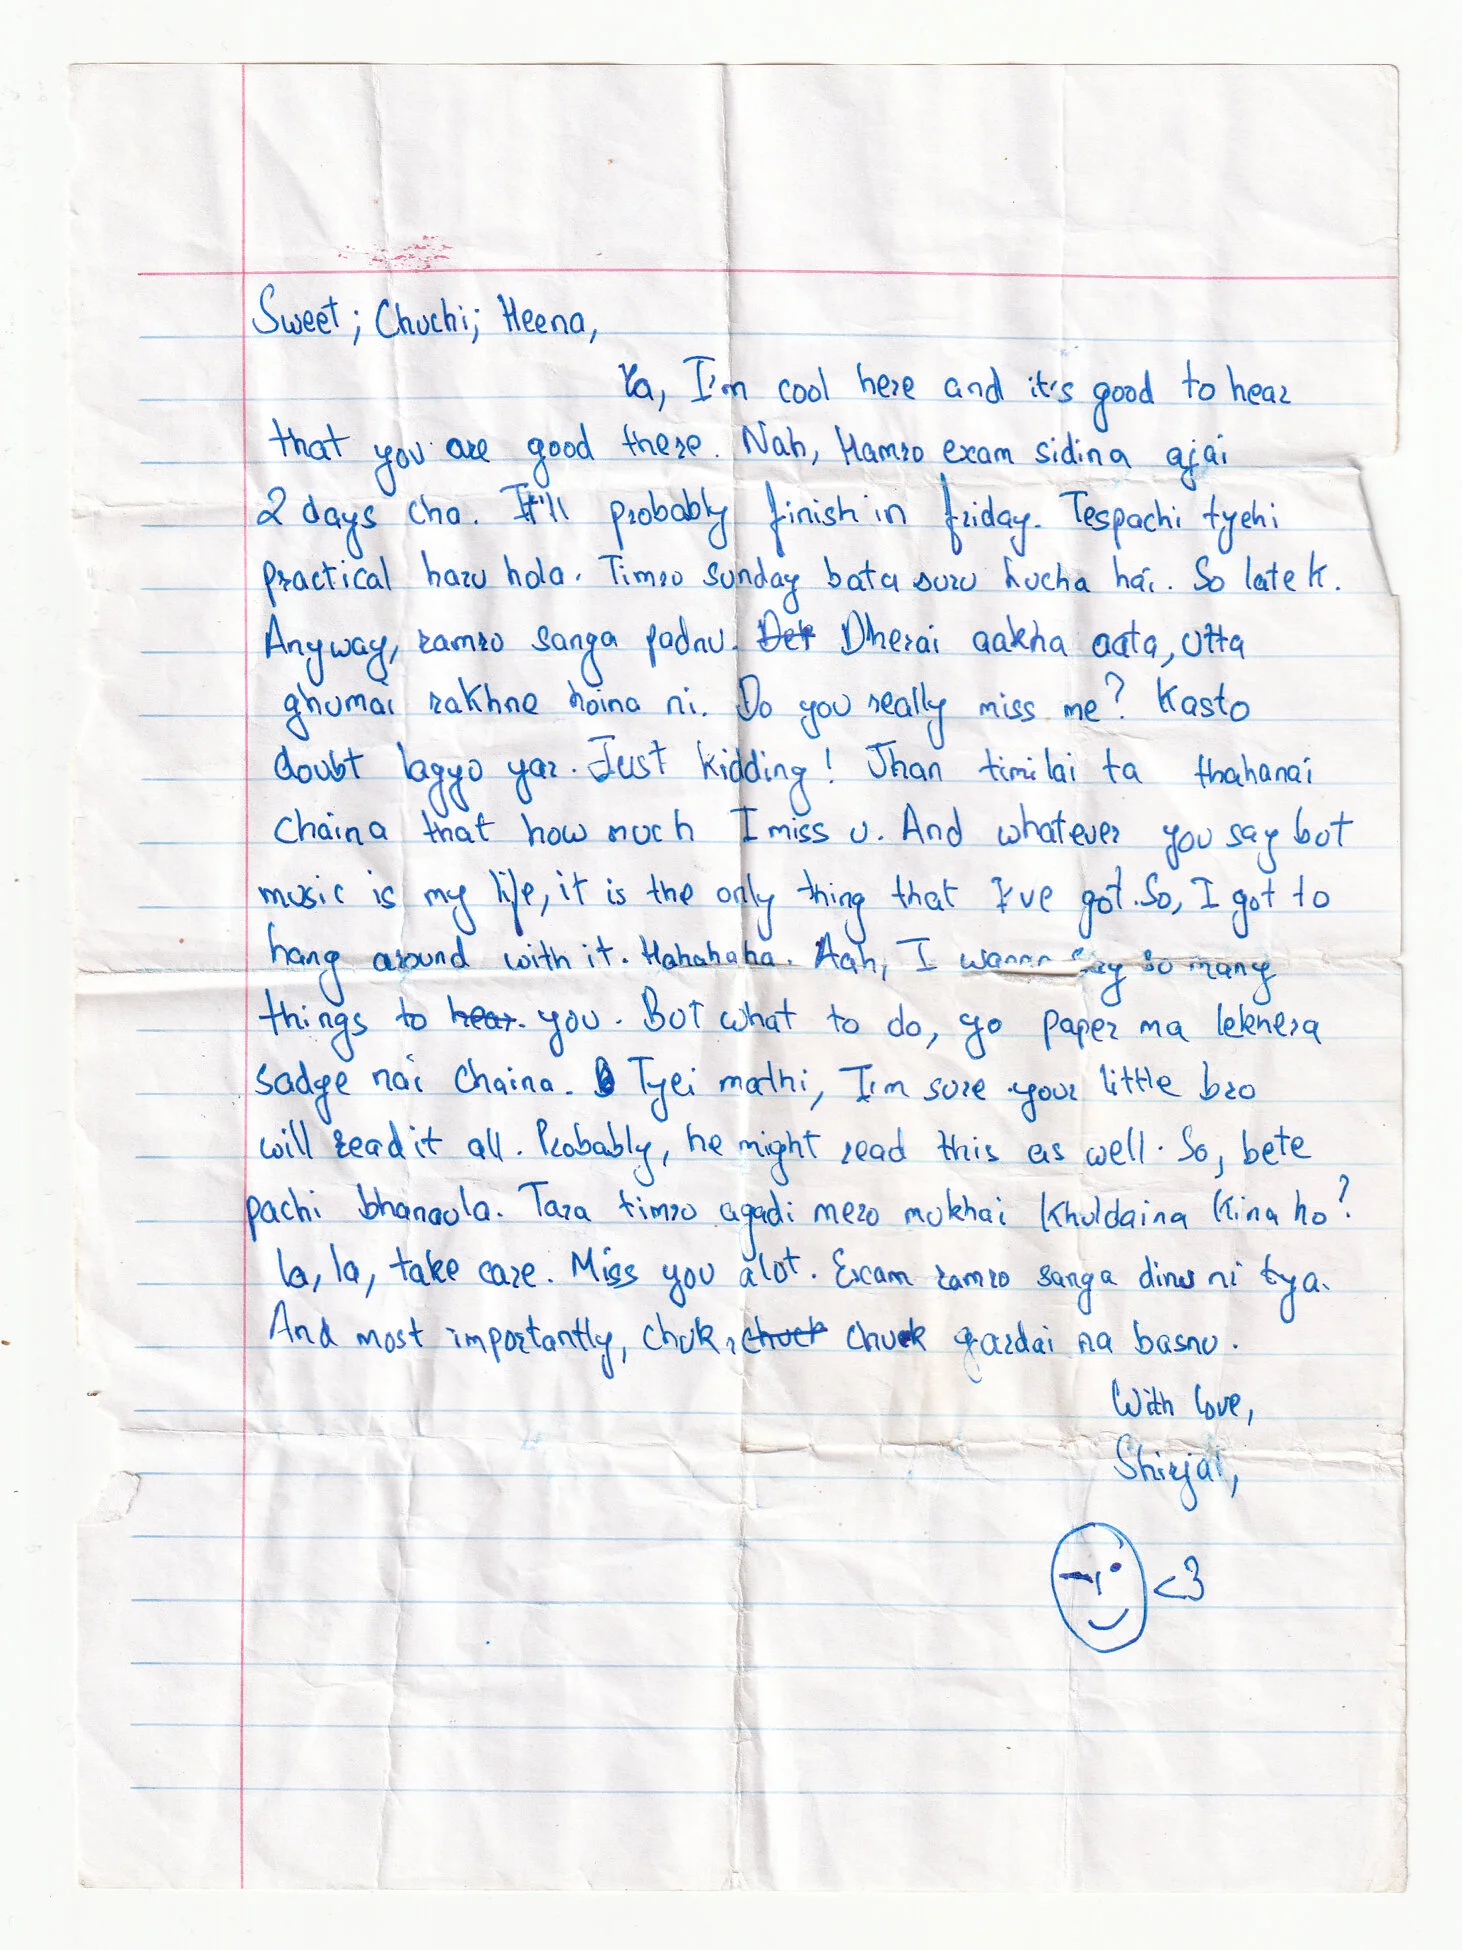 Sweet; Chuchi; Heena,
Ya, I'm cool here and it's good to hear
that you are good there. Nah, Hamro exam sidina ajai
2 days cha. It'll probably finish in friday. Tespachi tyehi
practical haru hola. Timro sunday bata suru hucha hai. So late k.
Anyway, ramro sanga padnu. Dherai aakha aata, utta
ghumai rakhne hoina ni. Do you really miss me? Kasto
doubt lagyo yar. Just kidding! Jhan timilai ta thahanai
chaina that how much I miss u. And whatever you say but
music is my life, it is the only thing that I've got. So, I got to
hang around with it. Hahahaha. Aah, I say so many
things to hear. you. But what to do, yo paper ma leknera
sadge nai chaina. Tyei mathi, I'm sure your little bro
will read it all. Probably, he might read this as well. So, bete
pachi bhanaula. Tara timro agadi mero mukhai khuldaina kina ho?
la, la, take care. Miss you alot. Exam ramro sanga dinu ni tya.
And most importantly, chuk, chuck chuck gardai na basnu.
With love,
Shirjal,
<3